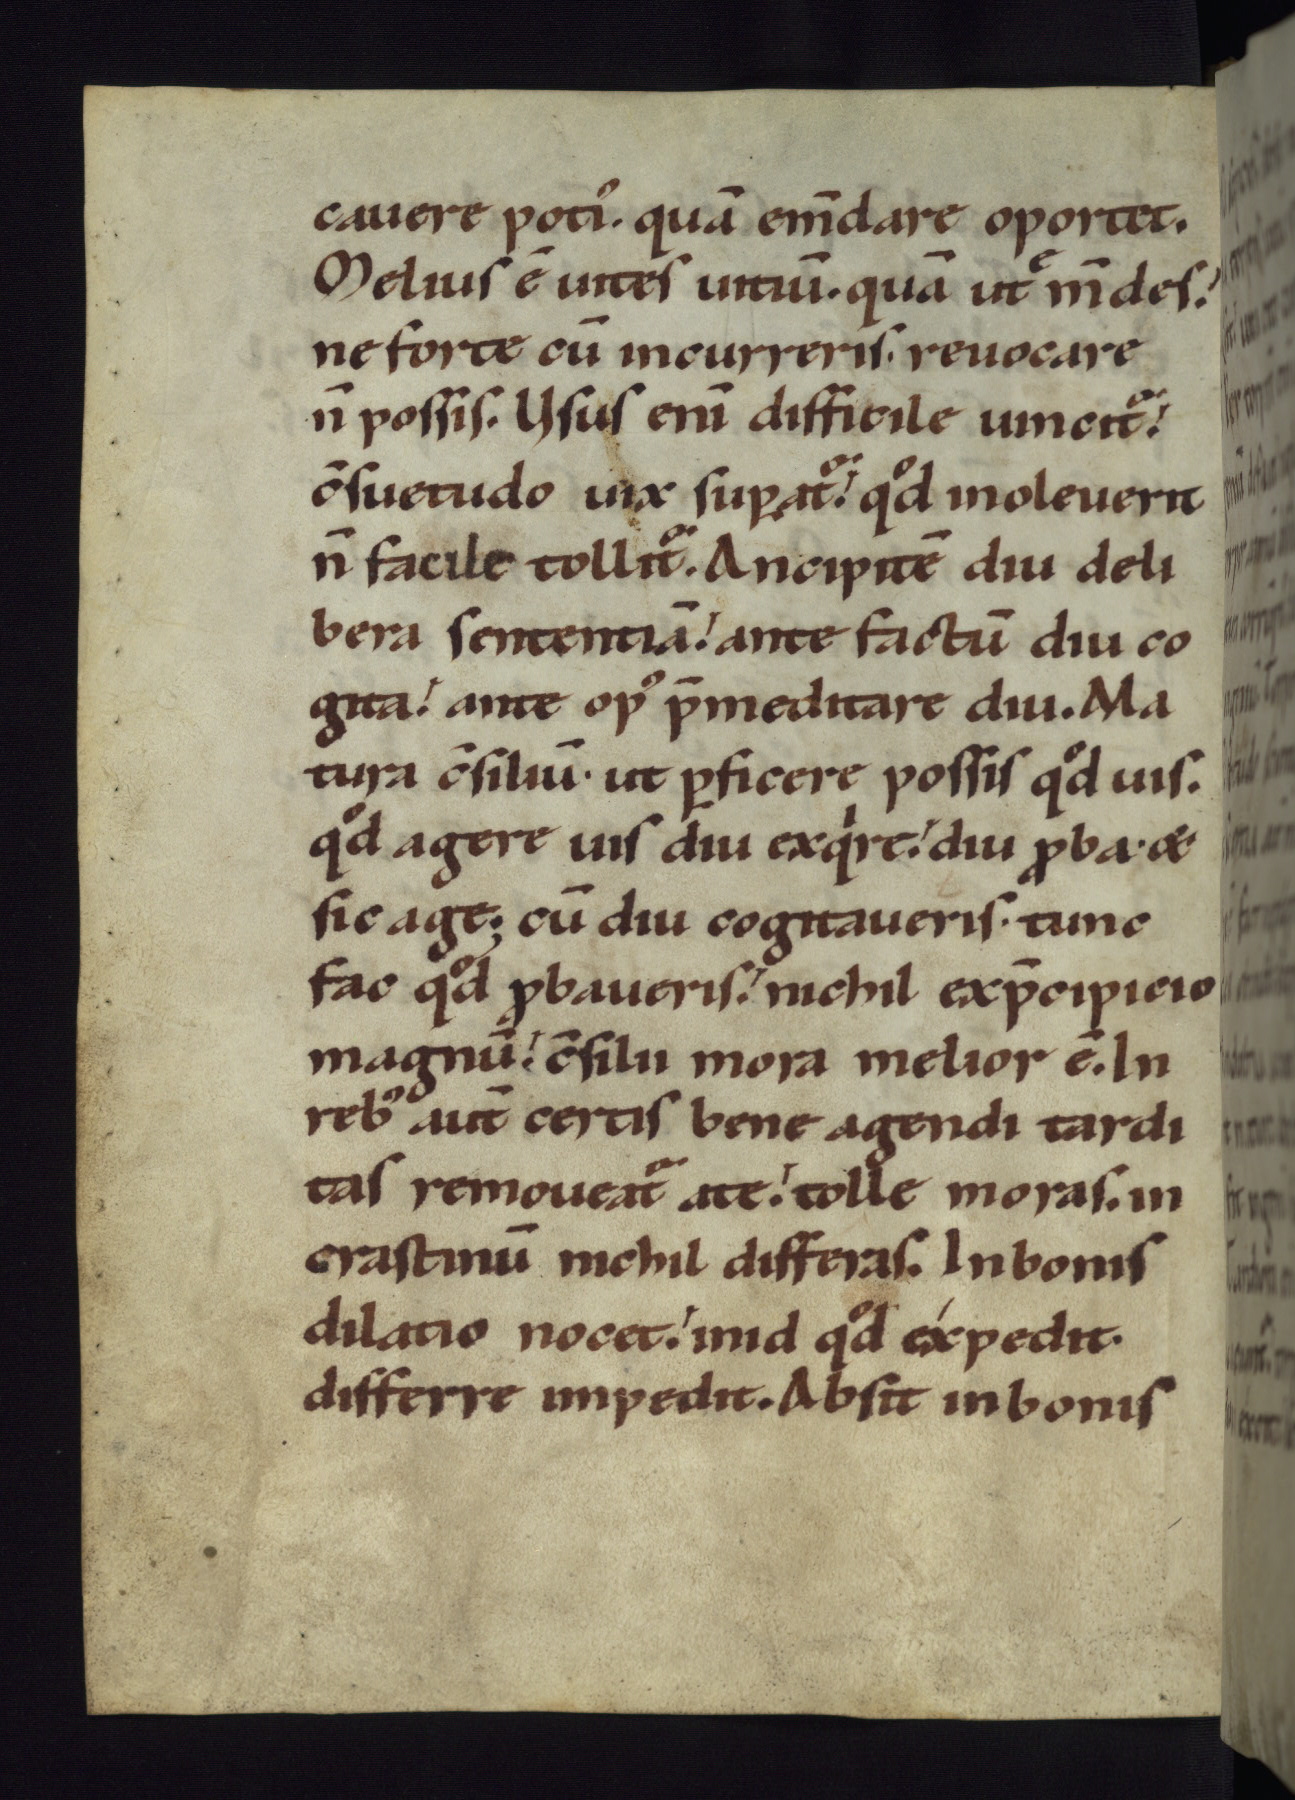 cauere poti᾽. quā em̄dare oportet.
Melius ē uites uitiū. quā ut ͤm̄des.
ne forte cū incurreris. reuocare
n̄ possis. Usus eni̅ difficile uincit᷑.
c̄suetudo uix sup̱at᷑. qͦd inoleuerit
n̄ facile tollit᷑. Ancipitē diu deli
bera sententiā. ante factū diu co
gita. ante op᾽ p̄meditare diu. Ma
tura c̄siliū. ut p̱ficere possis qͦd uis.
qͦd agere uis diu exqͥre. diu ꝓba. &
sic age; cū diu cogitaueris. tunc
fac qͦd ꝓbaueris. nichil exp̄cipicio
magnū. c̄silii mora melior ē. In
reb᾽ aut̄ certis bene agendi tardi
tas remoueat᷑ ate. tolle moras. in
crastinū nichil differas. In bonis
dilatio nocet. inid qͦd expedit.
differre impedit. Absit inbonis